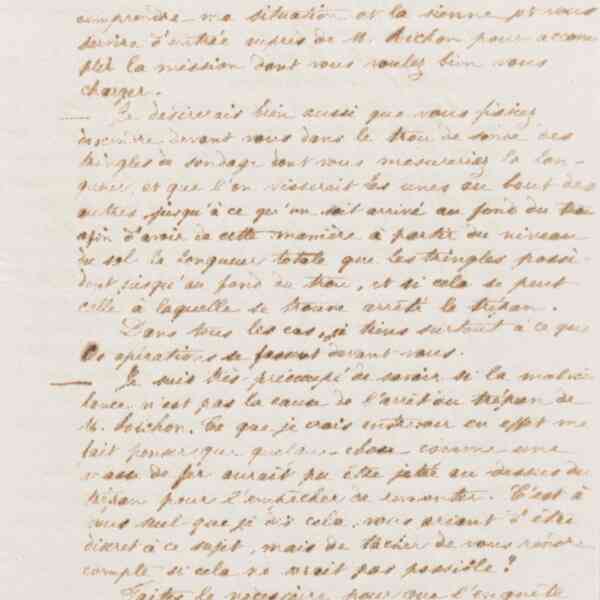 comprendre ma situation et la sienne et vous
servira d'entrée auprès de M. Soichon pour accom
plir la mission dont vous voulez bien vous
charger.
Je désirerais bien aussi que vous fissiez
descendre devant vous dans le trou de sonde des
tringles de sondage dont vous mesureriez la lon-
gueur et que l'on visserait les unes au bout des
autres jusqu'à ce qu'on soit arrivé au fond du trou
afin d'avoir de cette manière à partir du niveau
du sol la longueur totale que les tringles possè-
dent jusqu'au fond du trou, et si cela se peut
celle à laquelle se trouve arrêté le trépan.
Dans tous les cas, je tiens surtout à ce que
les opérations se fassent devant vous.
— Je suis très préoccupé de savoir si la malveil
lance n'est pas la cause de l'arrêt du trépan de
M. Soichon. Ce que je crois entrevoir en effet me
fait penser que quelque chose comme une
masse de fer aurait pu être jetée au dessus du
trépan pour l'empêcher de remonter. C'est à
vous seul que je dis cela, vous priant d'être
discret à ce sujet, mais de tâcher de vous rendre
compte si cela ne serait pas possible ?
Faites le nécessaire pour que l'enquête